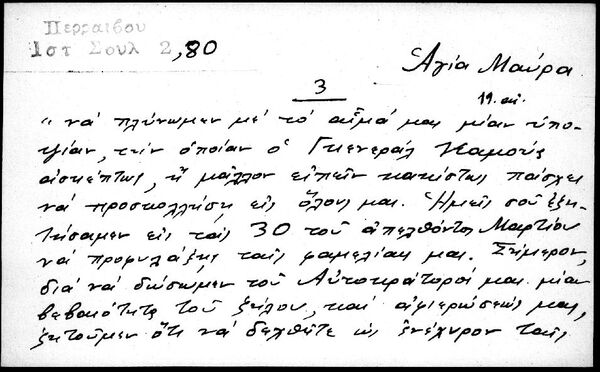 Περραιβου
Ιστ Σουλ 2,80
Ἁγία Μαύρα
3
19. αἰ.
" νά πλύνωμεν μέ τό αἷμά μας μίαν ὑπο-
ψίαν, τήν ὁποίαν ὁ Γκενεράλ Καμούς
ἀσκέπτως, ἤ μᾶλλον εἰπεῖν κακίστως πάσχει
νά προσκολλήσῃ εἰς ὅλους μας. Ἡμεῖς σοῦ ἐζη-
τήσαμεν εἰς τάς 30 τοῦ ἀπελθόντος Μαρτίου
νά προφυλάξῃς ταῖς φαμελίαις μας. Σήμερον,
διά νά δώσωμεν τοῦ Αὐτοκράτορός μας μίαν
βεβαιότητα τοῦ ζήλου, καί ἀφιερώσεώς μας,
ζητοῦμεν ὅτι νά δεχθεῖτε ὡς ἐνέχυρον ταῖς